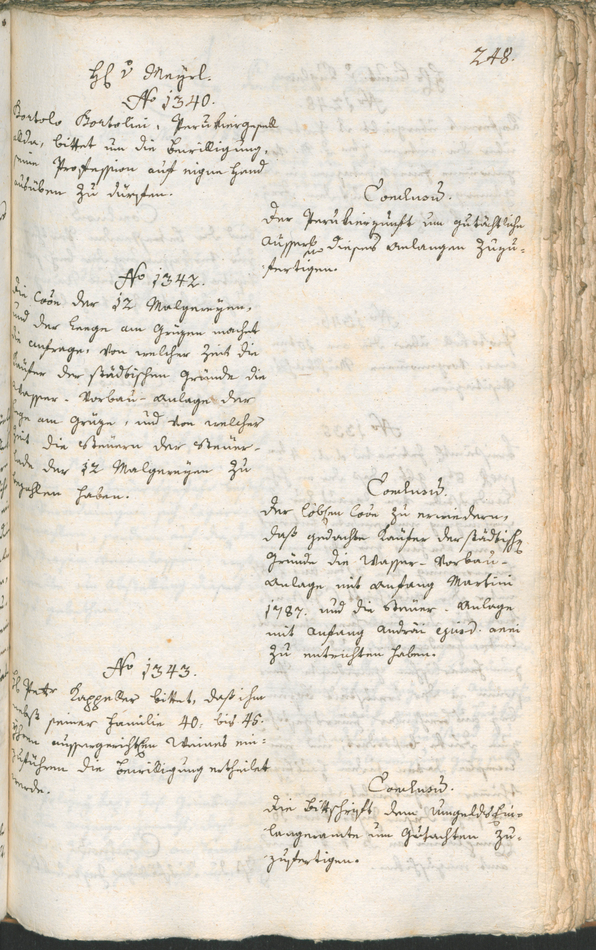 248.
H. v Mayrl.
No 1340.
Bortolo Bortolini, Peruckiergesell
allda, bittet um die Bewilligung,
seine Profession auf eigne Hand
ausüben zu dürfen.
Conclusum.
Der Peruckierzunft um gutächtliche
Äusserung dieses Anlangen zuzu-
fertigen.
No 1342.
Die löbe der 12 Malgereyen,
und der Leege am Grüzen machet
die Anfrage, von welcher Zeit die
Käufer der städtischen Gründe die
Wasser-Vorbau-Anlage der
Lege am Grüze, und von welcher
Zeit die Steuern der Steuer-
lade der 12 Malgereyen zu
bezahlen haben.
Conclusum.
Der löbsen zu erwiedern,
daß gedachte Käufer der städtischen
Gründe die Wasser-Vorbau-
Anlage mit Anfang Martini
1787. und die Steuer-Anlage
mit Anfang Andräi ejusd. anni
zu entrichten haben.
No 1343.
H. Peter Kappeller bittet, daß ihm
nebst seiner Familie 40. bis 45.
Yhren aussergerichtschen Weines ein-
zuführen die Bewilligung ertheilet
werde.
Conclusum.
Die Bittschrift dem Umgelds Ein-
langeramte um Gutachten zu-
zufertigen.